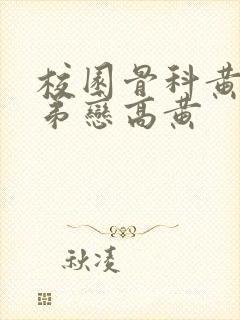 校園骨科黃
弟戀高黃
秋凌